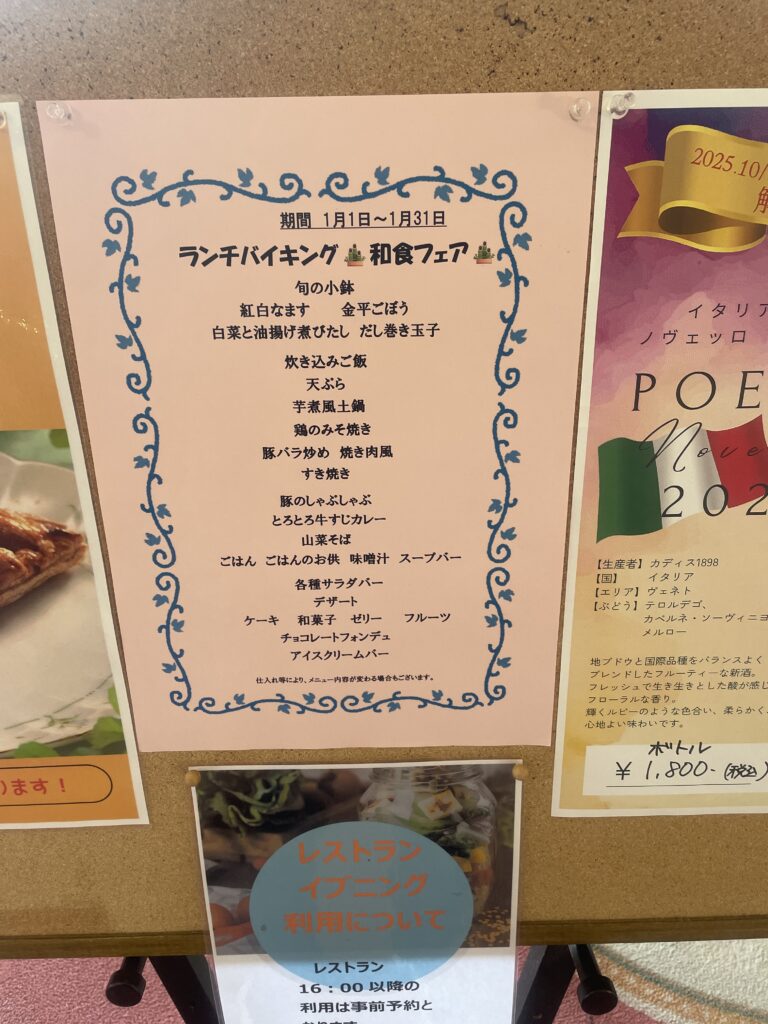 期間 1月1日～1月31日
ランチバイキング 和食フェア
旬の小鉢
紅白なます 金平ごぼう
白菜と油揚げ煮びたし だし巻き玉子
炊き込みご飯
天ぷら
芋煮風土鍋
鶏のみそ焼き
豚バラ炒め 焼き肉風
すき焼き
豚のしゃぶしゃぶ
とろとろ牛すじカレー
山菜そば
ごはん ごはんのお供 味噌汁 スープバー
各種サラダバー
デザート
ケーキ 和菓子 ゼリー フルーツ
チョコレートフォンデュ
アイスクリームバー
仕入れ等により、メニュー内容が変わる場合もございます。
ります！
2025.10/
解
イタリア
ノヴェッロ
POE
Nove
202
【生産者】カディス1898
【国】 イタリア
【エリア】ヴェネト
【ぶどう】テロルデゴ、
カベルネ・ソーヴィニヨ
メルロー
地ブドウと国際品種をバランスよく
ブレンドしたフルーティーな新酒。
フレッシュで生き生きとした酸が感じ
フローラルな香り。
輝くルビーのような色合い、柔らかく、
心地よい味わいです。
ボトル
¥1,800-(税込)
レストラン
イブニング
利用について
レストラン
16：00以降の
利用は事前予約と